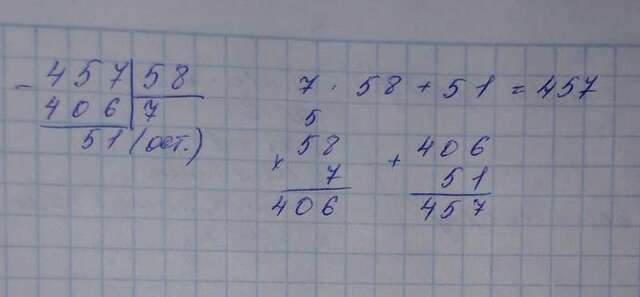 - 457 | 58
406 | 7
51 (ост.)
7 · 58 + 51 = 457
5
× 58
7
406
+ 406
51
457